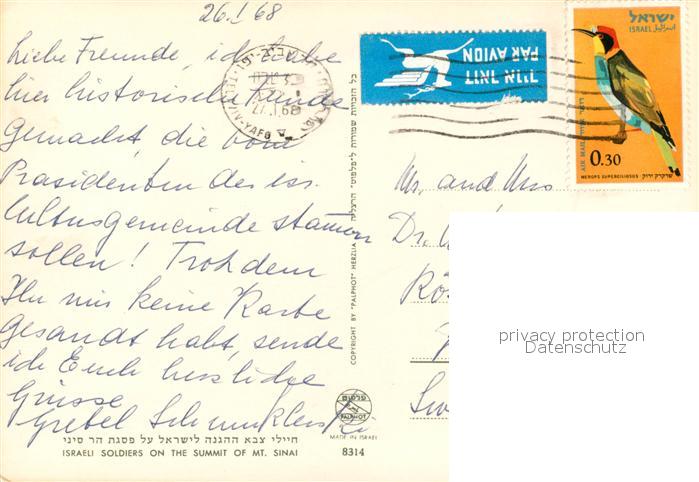 26.1.68
Liebe Freunde, ich habe
hier historische Funde
gemacht, die vom
Präsidenten des isr.
Cultusgemeinde stammen
sollen! Trotzdem
Ihr mir keine Karte
gesandt habt, sende
ich Euch herzliche
Grüsse
Gretel
חיילי צבא ההגנה לישראל על פסגת הר סיני
ISRAELI SOLDIERS ON THE SUMMIT OF MT. SINAI
TEL AVIV-YAFO
27.1.68
דואר אויר
PAR AVION
ישראל
ISRAEL
اسرائيل
דואר אויר
AIR MAIL
0.30
MEROPS SUPERCILIOSUS · שרקרק ירוק
כל הזכויות שמורות ל"פלפוט" הרצליה
COPYRIGHT BY "PALPHOT" HERZLIA
פלפוט
PALPHOT
MADE IN ISRAEL
8314
Mr. and Mrs
Dr.
privacy protection
Datenschutz